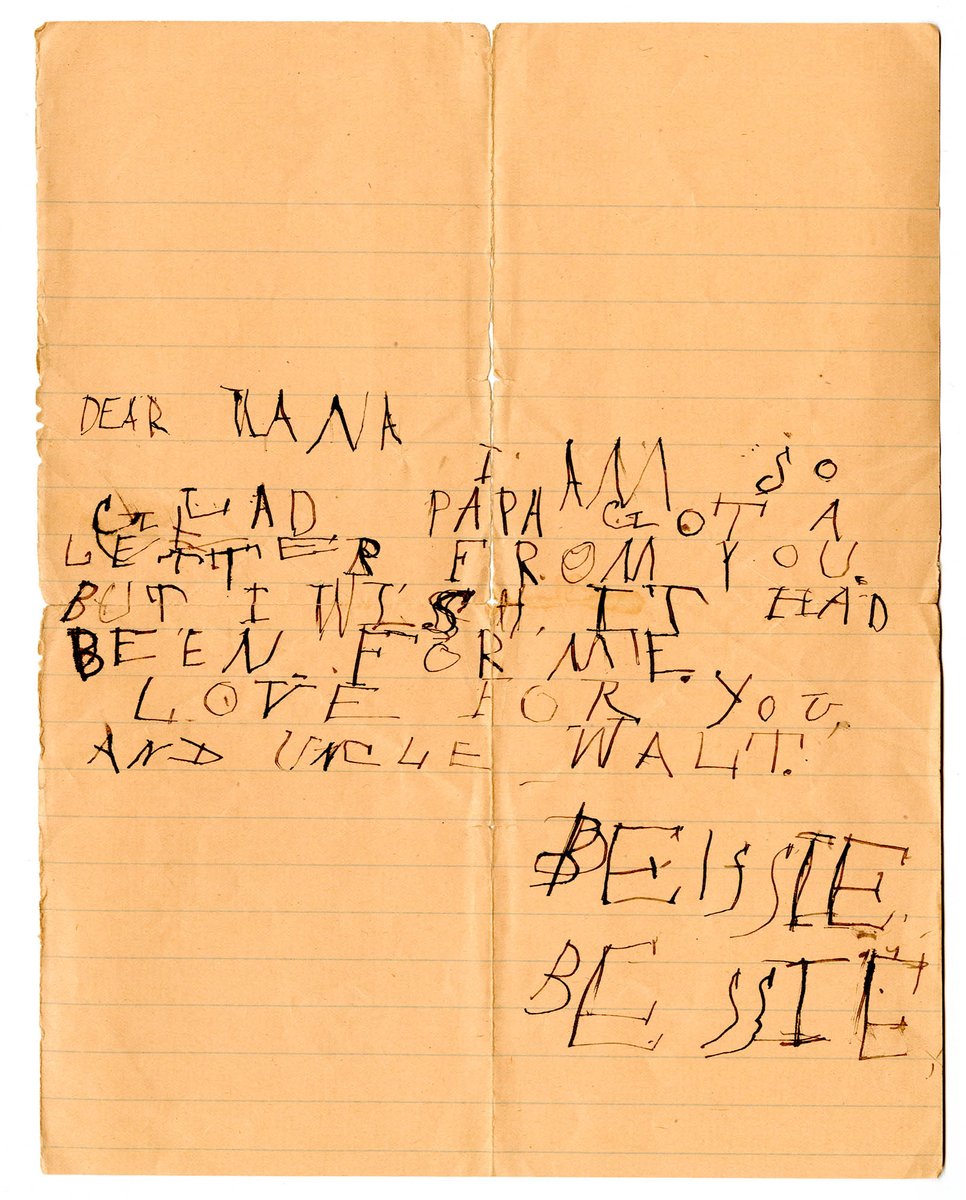 DEAR NANA
I AM SO
GLAD PAPA GOT A
LETTER FROM YOU.
BUT I WISH, IT HAD
BEEN. FOR ME.
LOVE FOR YOU,
AND UNCLE WALT.
BEISSIE.
BESSIE